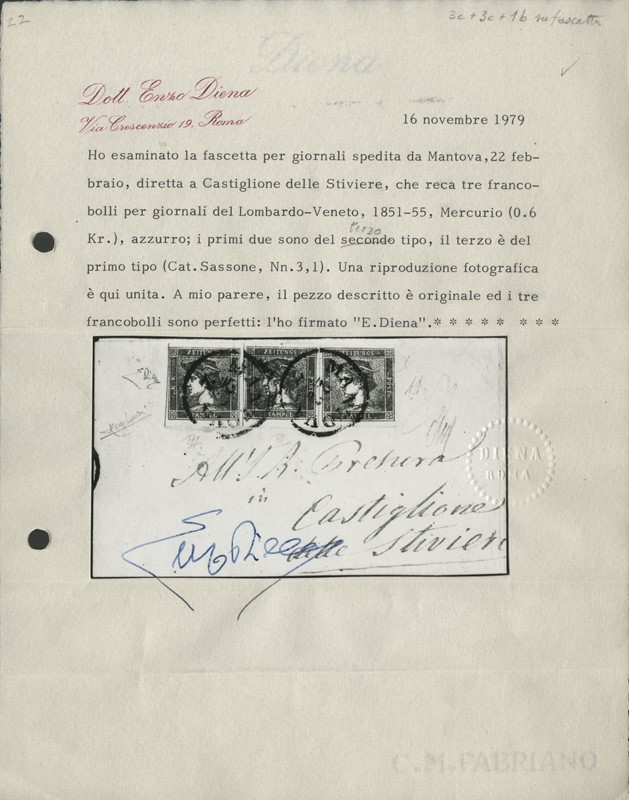 22
3c + 3c + 1b su fascetta
Diena
Dott. Enzo Diena
Via Crescenzio 19, Roma
16 novembre 1979
Ho esaminato la fascetta per giornali spedita da Mantova,22 feb-
braio, diretta a Castiglione delle Stiviere, che reca tre franco-
bolli per giornali del Lombardo-Veneto, 1851-55, Mercurio (0.6
terzo
Kr.), azzurro; i primi due sono del secondo tipo, il terzo è del
primo tipo (Cat.Sassone, Nn.3,1). Una riproduzione fotografica
è qui unita. A mio parere, il pezzo descritto è originale ed i tre
francobolli sono perfetti: l'ho firmato "E.Diena".* * * * * * * *
ZEITUNGS ZEITUNGS ZEITUNGS
STÄMPEL STÄMPEL STÄMPEL
DIENA
ROMA
All'I. R. Pretura
in
Castiglione
delle Stiviere
Enzo Diena
C.M.FABRIANO